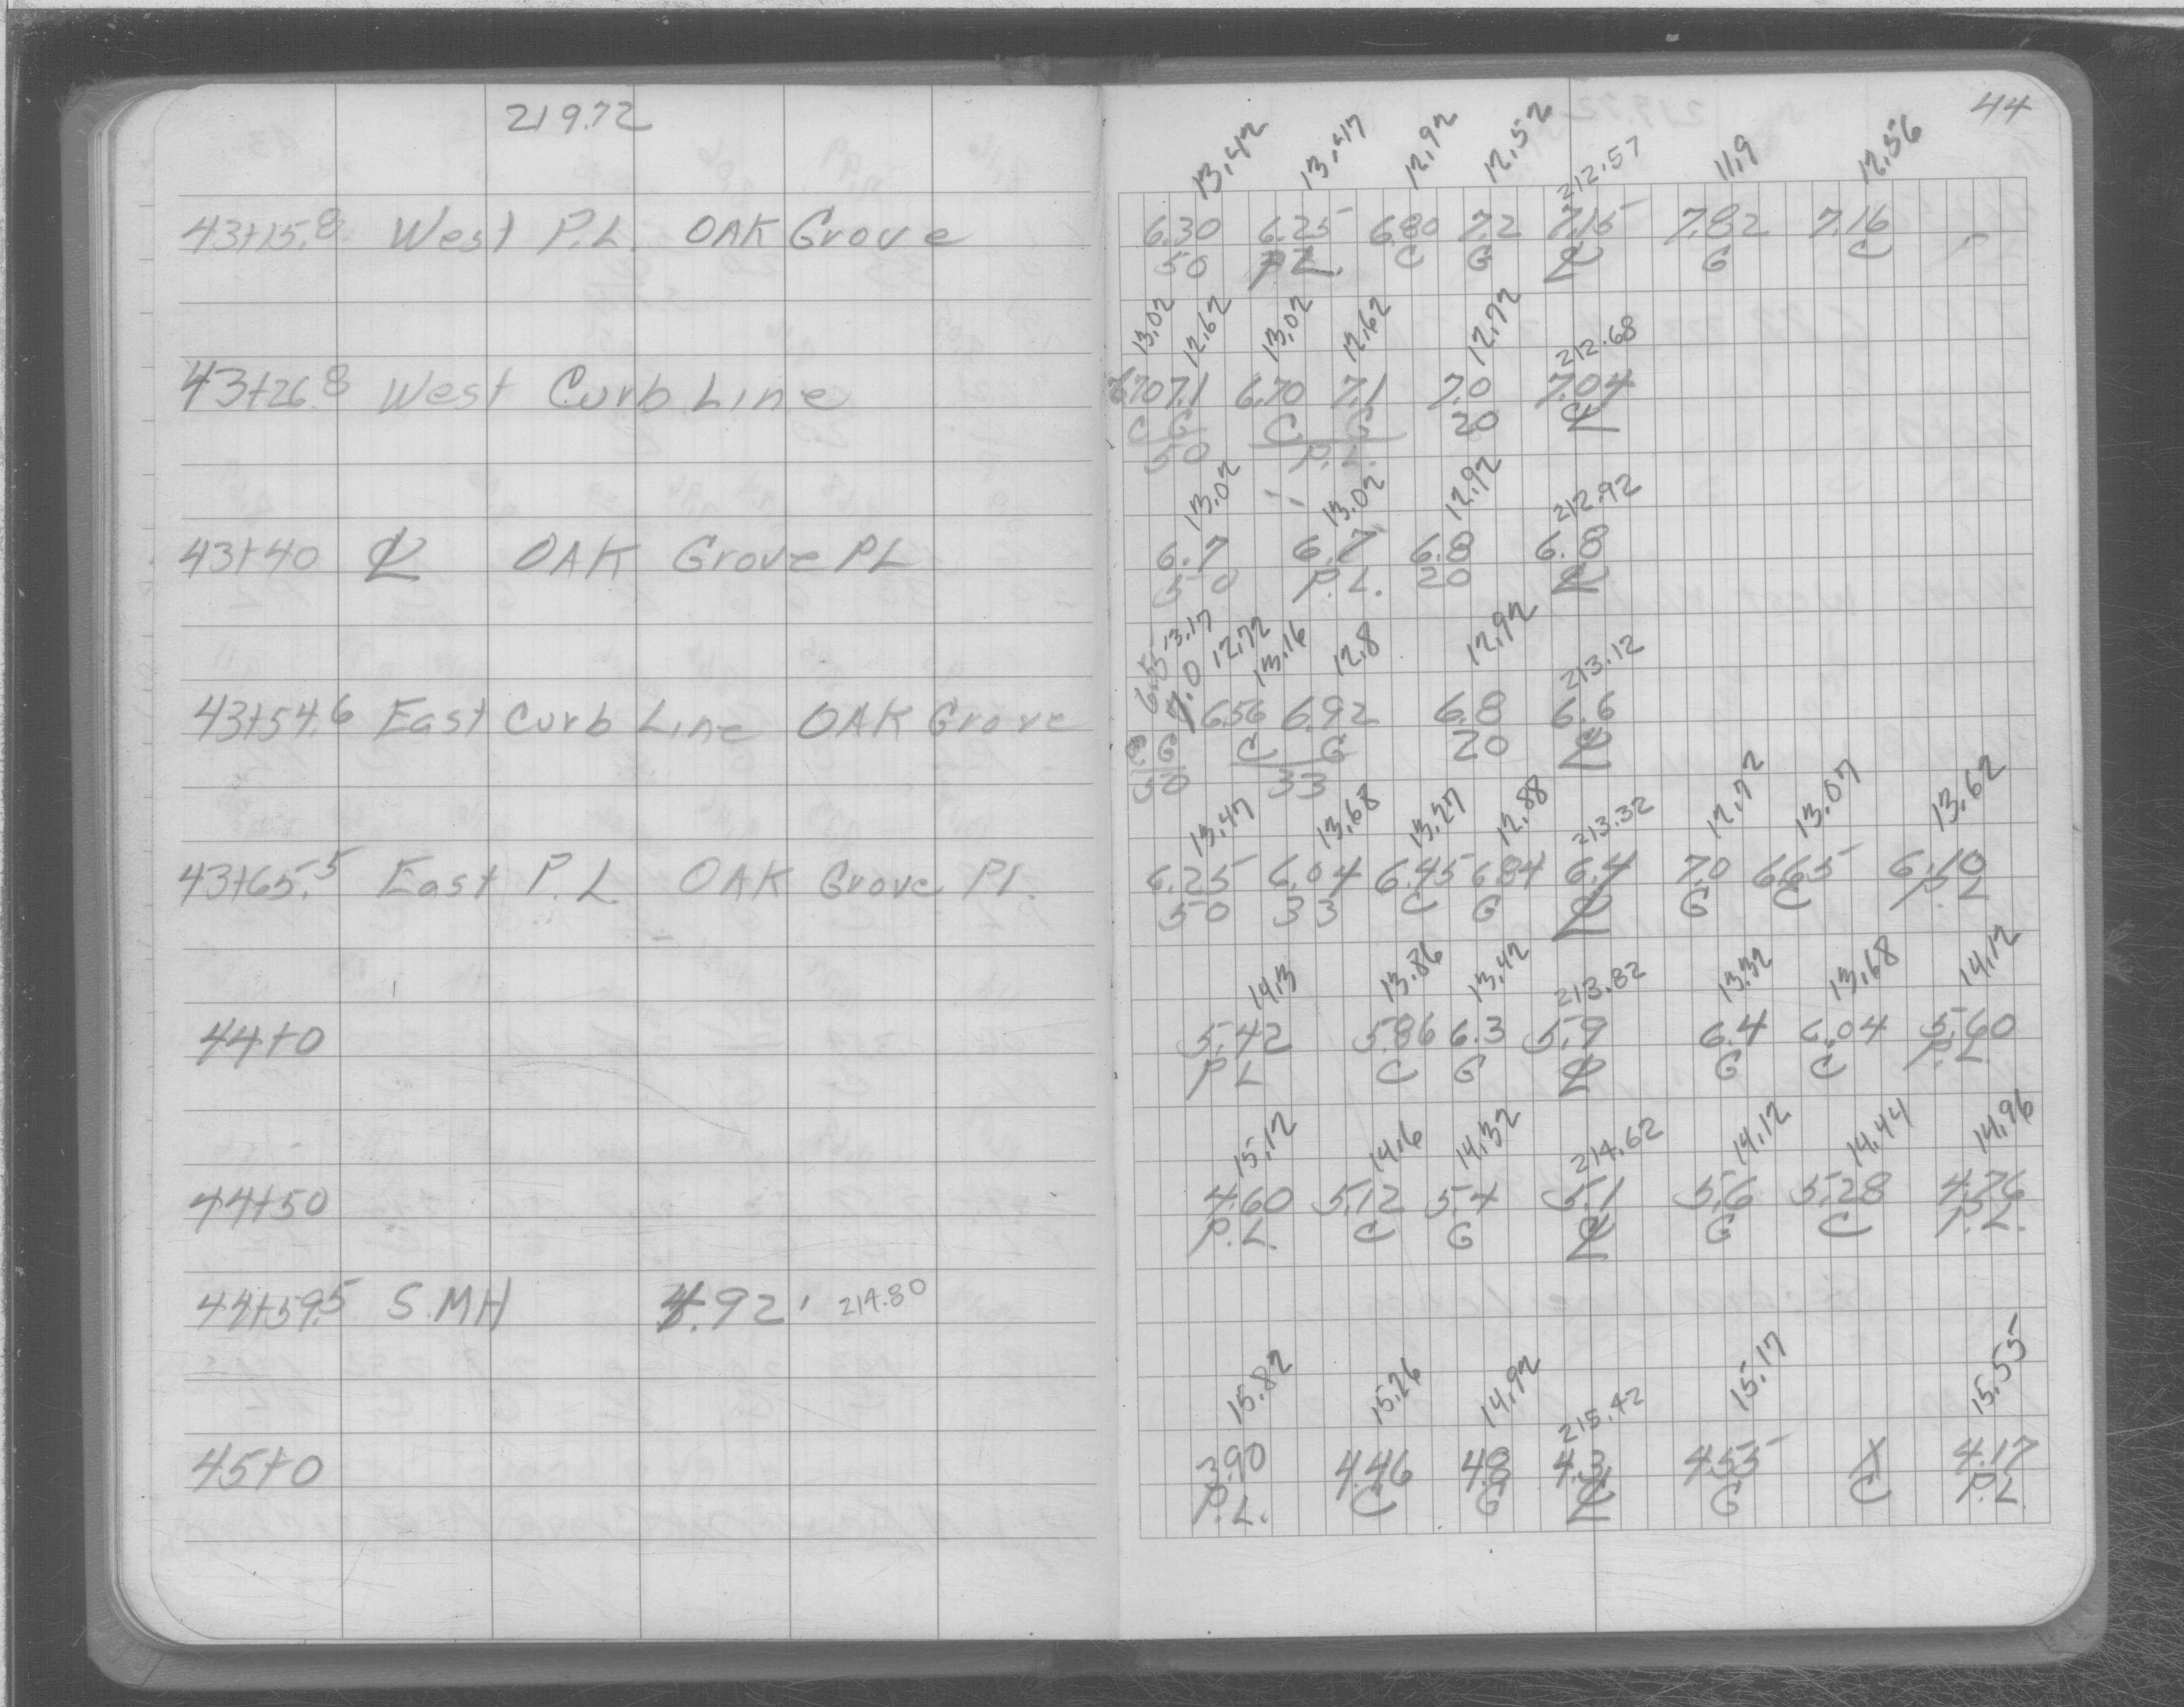 219.72
44
13.42 13.47 12.92 12.52 212.57 11.9 12.56
43+15.8 West P.L. OAK Grove 6.30 6.25 6.80 7.2 7.15 7.82 7.16
50 P.L. C G ℄ G C
13.02 12.62 13.02 12.62 12.72 212.68
43+26.8 West Curb Line 6.70 7.1 6.70 7.1 7.0 7.04
C G C G 20 ℄
50 P.L.
13.02 13.02 12.92 212.92
43+40 ℄ OAK Grove PL 6.7 6.7 6.8 6.8
50 P.L. 20 ℄
13.17 12.72 13.16 12.8 12.92 213.12
43+54.6 East Curb Line OAK Grove 6.55 7.0 6.56 6.92 6.8 6.6
C G C G 20 ℄
50 33
13.47 13.68 13.27 12.88 213.32 12.72 13.07 13.62
43+65.5 East P.L. OAK Grove Pl. 6.25 6.04 6.45 6.84 6.4 7.0 6.65 6.10
50 33 C G ℄ G C P.L
14.3 13.86 13.42 213.82 13.32 13.68 14.12
44+0 5.42 5.86 6.3 5.9 6.4 6.04 5.60
P L C G ℄ G C P.L.
15.12 14.6 14.32 214.62 14.12 14.44 14.96
44+50 4.60 5.12 5.4 5.1 5.6 5.28 4.76
P.L. C G ℄ G C P.L.
44+59.5 S.MH 4.92' 214.80
15.82 15.26 14.92 215.42 15.17 15.55
45+0 3.90 4.46 4.8 4.3 4.55 X 4.17
P.L. C G ℄ G C P.L.